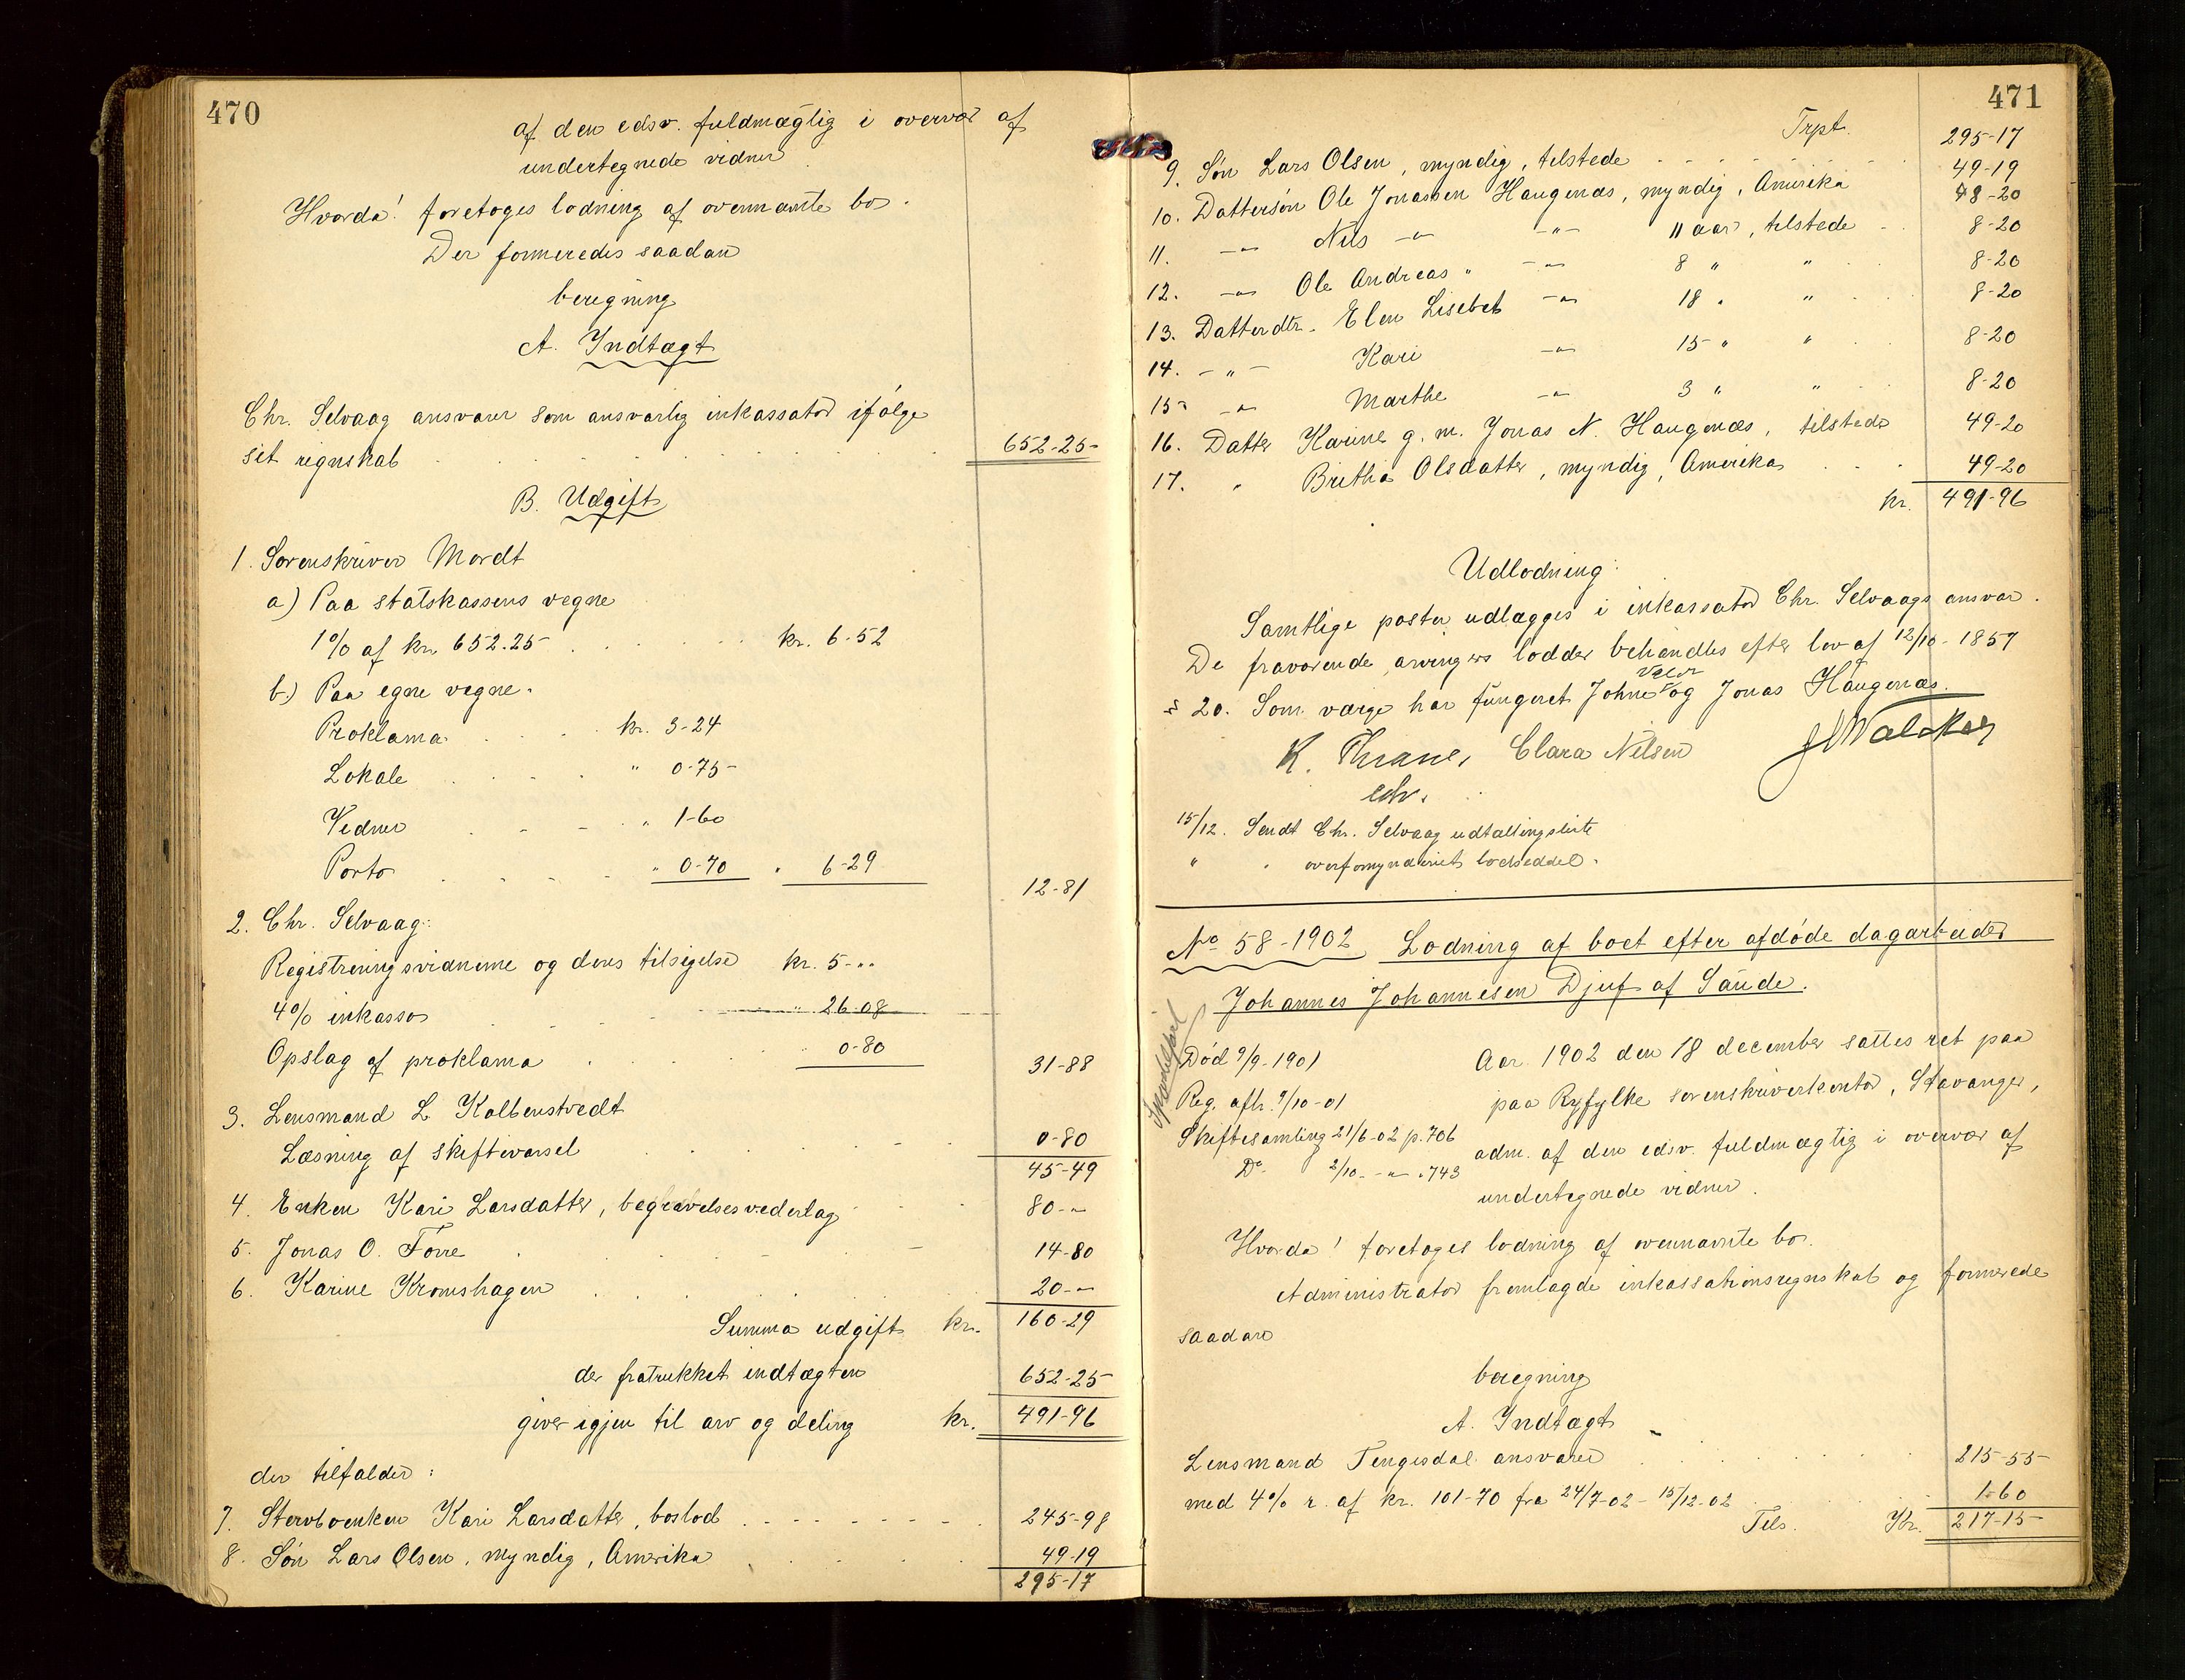 470
af den edsv. fuldmægtig i overvær af
undertegnede vidner
Hvorda! foretoges lodning af ovennævnte bo.
Der formeredes saadan
beregning
A. Indtægt
Chr. Selvaag ansvarer som ansvarlig inkassator ifølge
sit regnskab . . . 652-25
B. Udgift
1. Sorenskriver Mordt
a) Paa statskassens vegne
1% af kr. 652.25 . . . kr. 6-52
b.) Paa egne vegne.
Proklama . . . kr. 3-24
Lokale . . . " 0-75
Vidner . . . " 1-60
Porto . . . " 0-70 " 6-29
12-81
2. Chr. Selvaag:
Registreringsvidnerne og deres tilsigelse kr. 5-"
4% inkasso . . . " 26-08
Opslag af proklama . . . " 0-80
31-88
3. Lensmand L. Kolbenstvedt
Læsning af skiftevarsel . . . 0-80
45-49
4. Enken Kari Larsdatter, begravelsesvederlag . . . 80-"
5. Jonas O. Førre . . . 14-80
6. Karine Kromshagen . . . 20-"
Summa udgift kr. 160-29
der fratrukket indtægten 652-25
giver igjen til arv og deling kr. 491-96
der tilfalder:
7. Stervboenken Kari Larsdatter, boslod . . . 245-98
8. Søn Lars Olsen, myndig, Amerika . . . 49-19
295-17
471
Trpt. 295-17
9. Søn Lars Olsen, myndig, tilstede . . . 49-19
10. Dattersøn Ole Jonassen Haugenæs, myndig, Amerika 8-20
11. -"- Nils -"- -"- 11 aar, tilstede . . 8-20
12. -"- Ole Andreas " -"- 8 " " . 8-20
13. Datterdtr. Elen Lisebet -"- 18 " " . 8-20
14. -"- Kari -"- 15 " " . 8-20
15 -"- Marthe -"- 3 " " . 8-20
16. Datter Karine g. m. Jonas N. Haugenæs, tilstede 49-20
17. " Britha Olsdatter, myndig, Amerika . . . 49-20
kr. 491-96
Udlodning:
Samtlige poster udlægges i inkassator Chr. Selvaags ansvar.
De fraværende arvingers lodder behandles efter lov af 12/10-1857
§ 20. Som værge har fungeret Johne og Jonas Haugenæs.
K. Thrane, Clara Nilsen
edv.
15/12. Sendt Chr. Selvaag udtællingsliste
" " overformynderiet lodseddel.
No 58-1902 Lodning af boet efter afdøde dagarbeider
Johannes Johannesen Djuf af Saude.
Død 9/9-1901
Reg. afh. 9/10-01
Skiftesamling 21/6-02 p. 706
Do 2/10 -"- " 743
Aar 1902 den 18 december sattes ret paa
paa Ryfylke sorenskriverkontor, Stavanger,
adm. af den edsv. fuldmægtig i overvær af
undertegnede vidner.
Hvorda! foretoges lodning af ovennævnte bo.
Administrator fremlagde inkassationsregnskab og formerede
saadan
beregning
A. Indtægt
Lensmand Tengesdal ansvarer . . . 215-55
med 4% r. af kr. 101-70 fra 24/7-02 - 15/12-02 . . . 1-60
Tils. Kr. 217-15